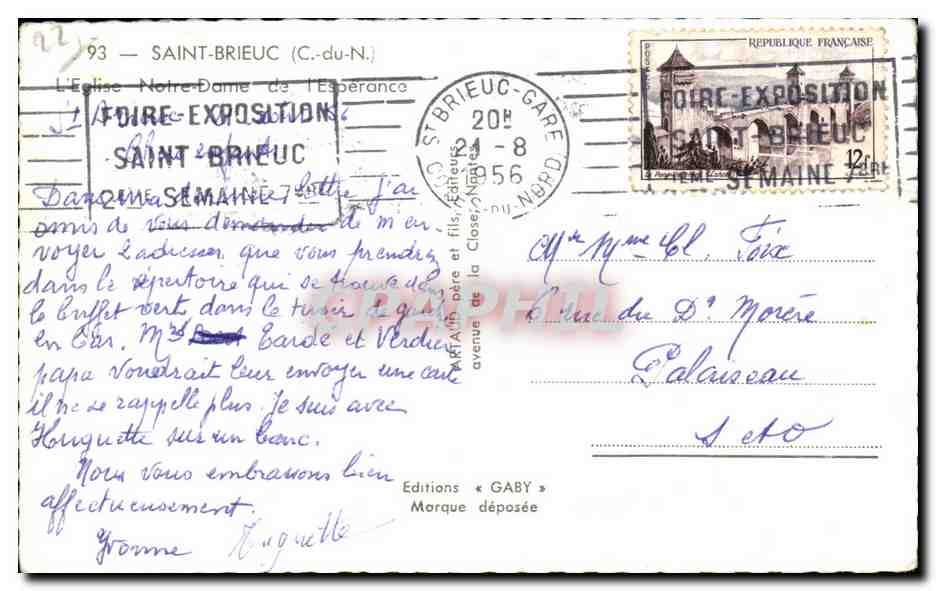 22
93 — SAINT-BRIEUC (C.-du-N.)
L'Eglise Notre-Dame de l'Espérance
FOIRE-EXPOSITION
SAINT BRIEUC
2EME SEMAINE
Dans lettre j'ai
omis de vous demander de m'en-
voyer l'adresse que vous prendrez
dans le répertoire qui se trouve dans
le buffet vert dans le tiroir de
en bas. Mrs Tardé et Verdier
papa voudrait leur envoyer une carte
il ne se rappelle plus. Je suis avec
Huguette sur un banc.
Nous vous embrassons bien
affectueusement.
Yvonne Huguette
ST BRIEUC-GARE
20H
21 - 8
1956
CÔTES-DU-NORD
ARTAUD père et fils, Editeurs
avenue de la Close, Nantes
Editions « GABY »
Marque déposée
REPUBLIQUE FRANÇAISE
12f
FOIRE-EXPOSITION
SAINT BRIEUC
SEMAINE
Mr Mme Cl. Foix
6 rue du Dr Morère
Palaiseau
S et O
CPAPHIL